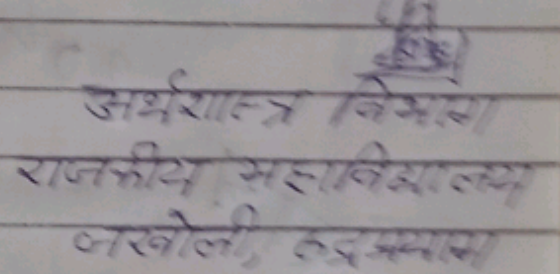 अर्थशास्त्र विभाग
राजकीय महाविद्यालय
जखोली, रुद्रप्रयाग